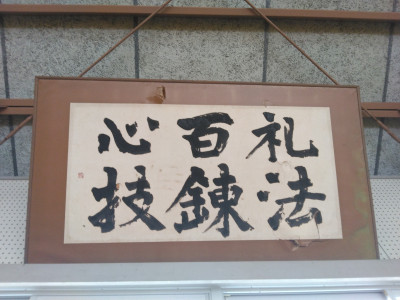 礼法
百錬
心技